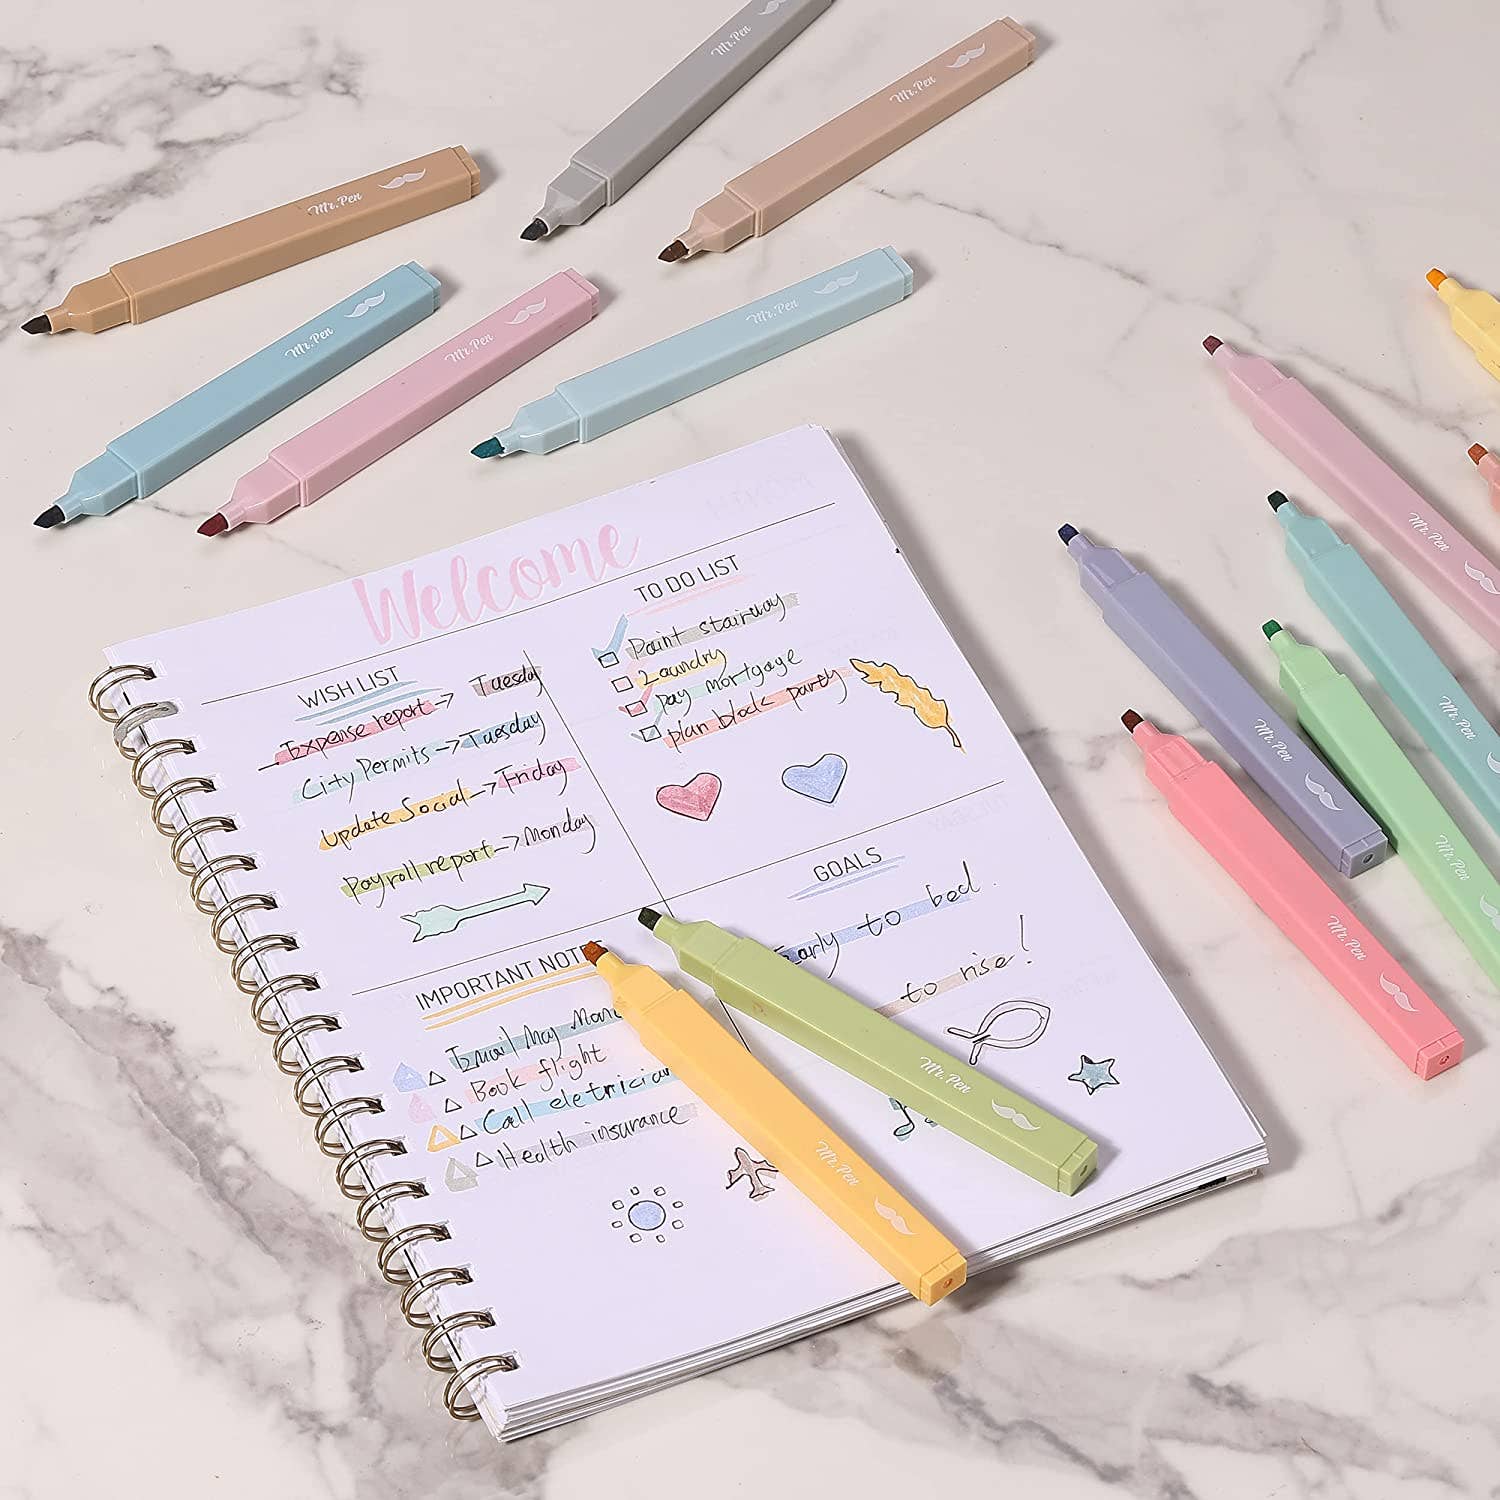 Mr.Pen
Mr.Pen
Mr.Pen
Mr.Pen
Mr.Pen
Mr.Pen
Welcome
WISH LIST
Expense report → Tuesday
City Permits → Tuesday
Update Social → Friday
Payroll report → Monday
TO DO LIST
Paint stairway
Laundry
pay mortgage
plan block party
GOALS
Early to bed.
to rise!
IMPORTANT NOTES
Email My
Book flight
Call eletrician
Health insurance
Mr.Pen
Mr.Pen
Mr.Pen
Mr.Pen
Mr.Pen
Mr.Pen
Mr.Pen